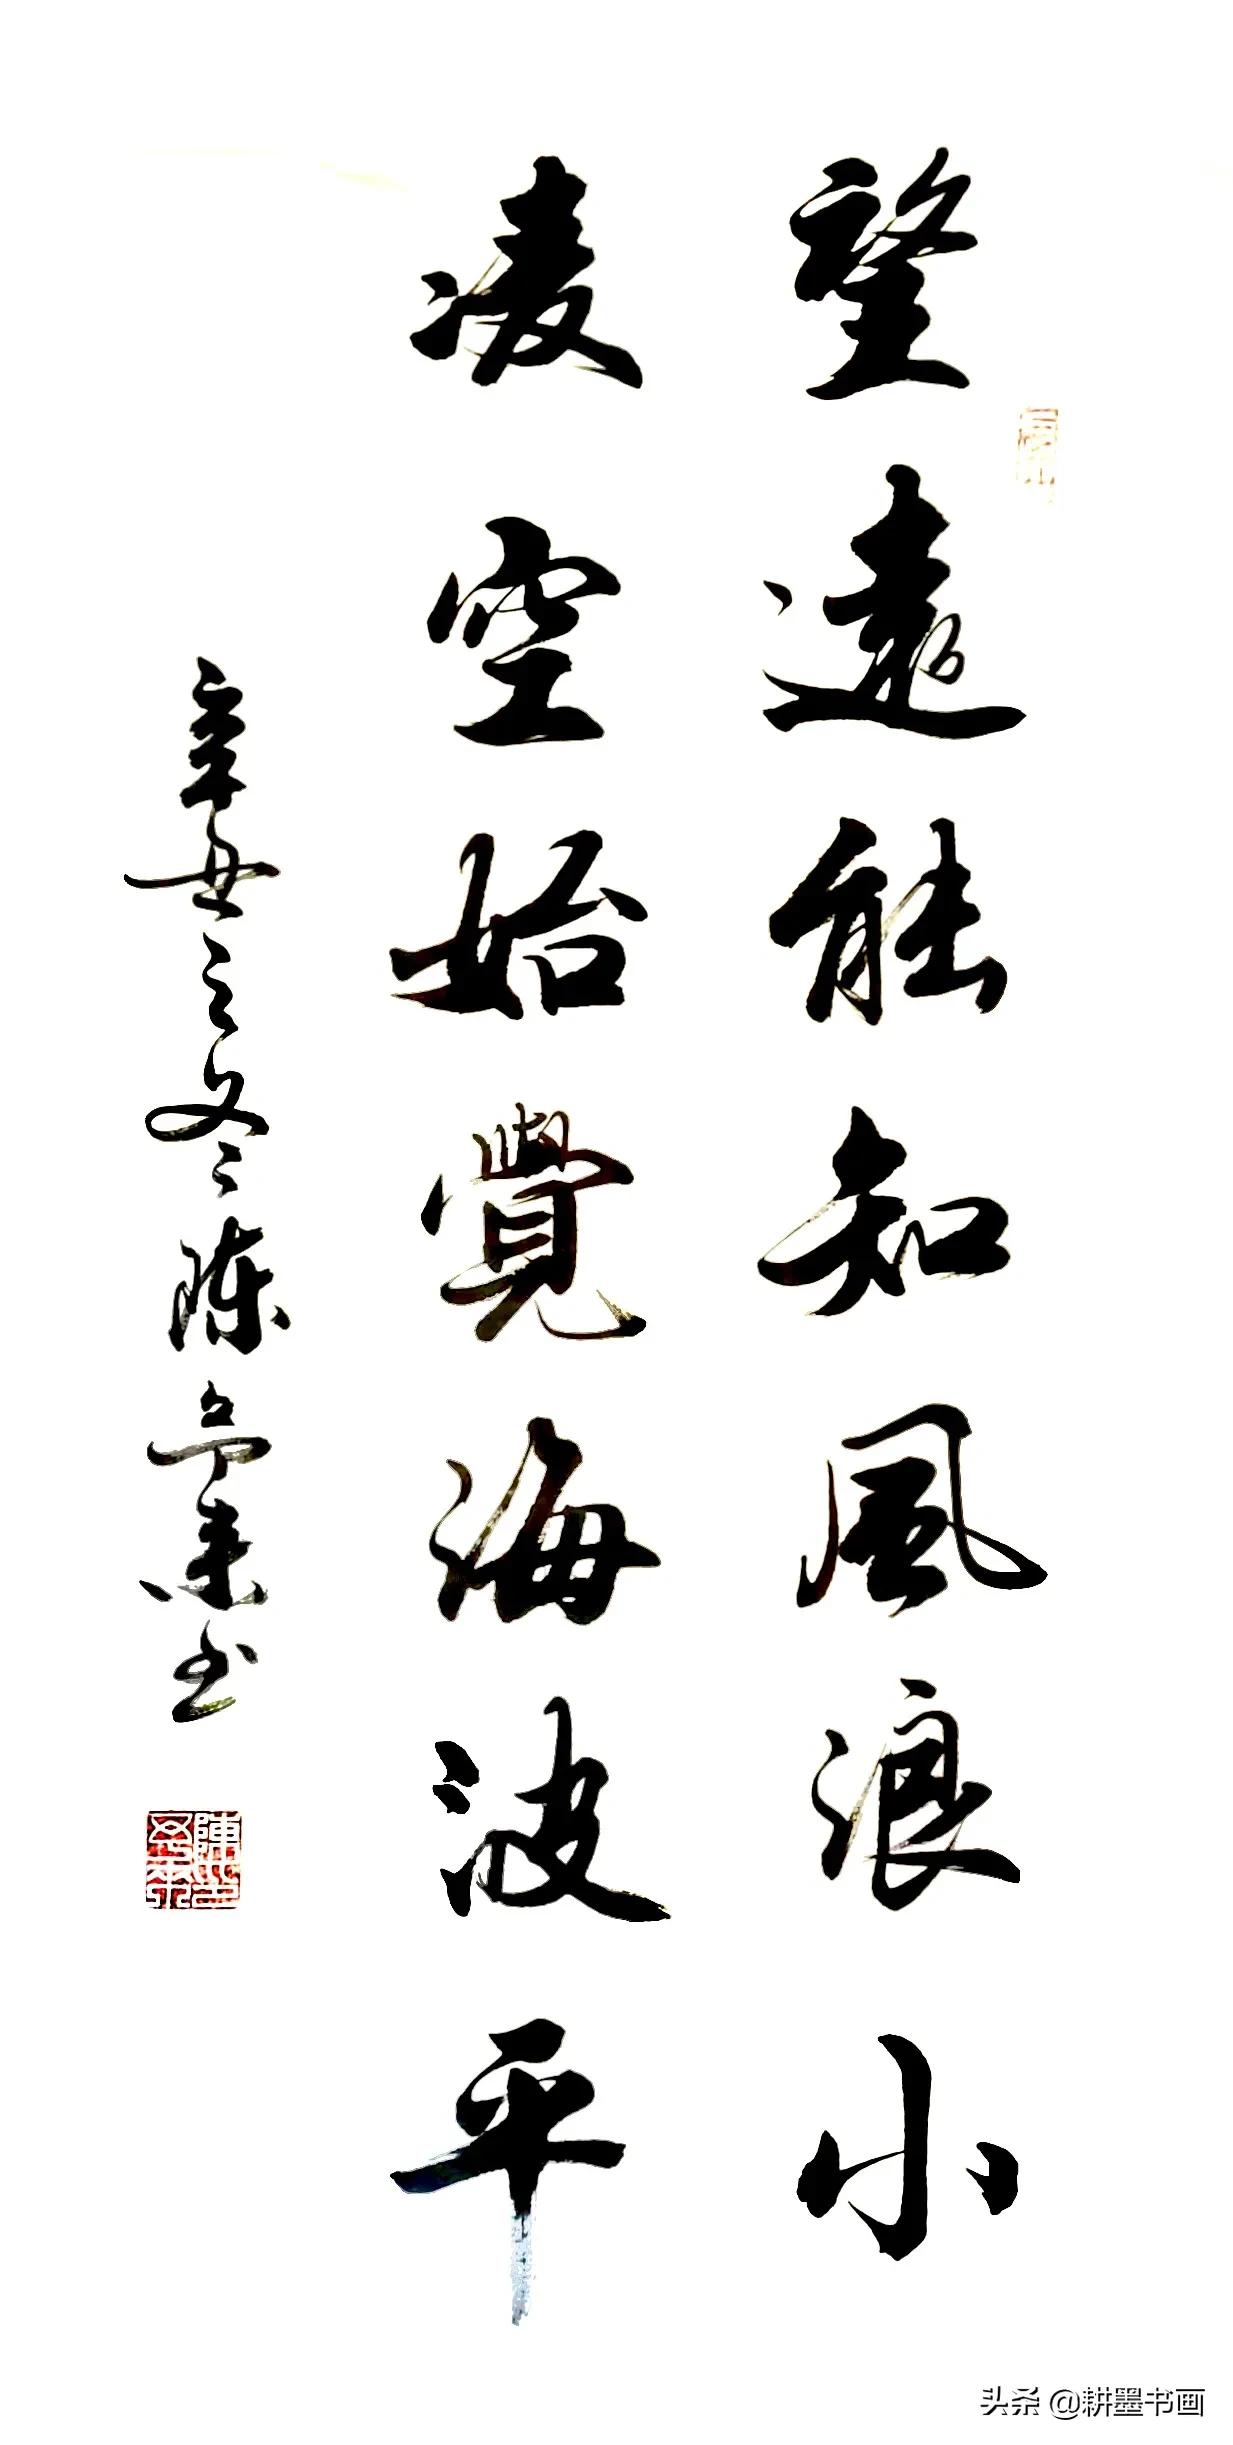 望遠能知風浪小
凌空始覺海波平
辛丑之冬陈令業书
头条 @耕墨书画